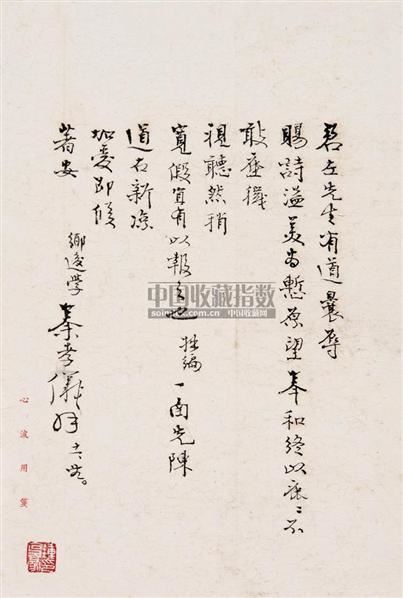 君左先生有道曩辱
賜詩溢美尚慙厚望奉和終以不
敢塵穢
視聽然稍
寬假宜有以報也 拙編一函先陳
道右新涼
加愛即候
著安
鄉後學 秦孝儀拜
心波用箋
中国收藏指数
中国收藏网